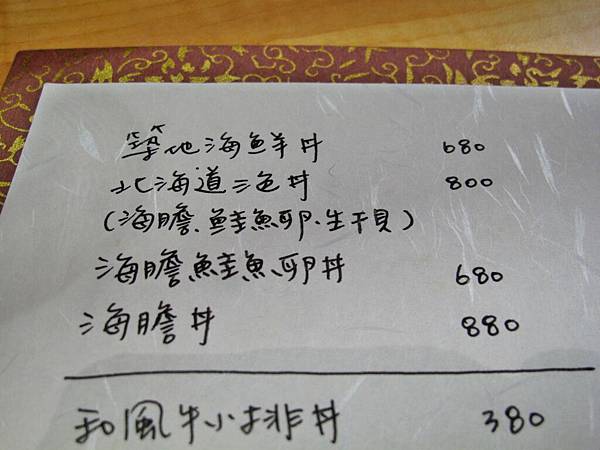 築地海鮮丼 680
北海道三色丼 800
(海膽.鮭魚卵.生干貝)
海膽鮭魚卵丼 680
海膽丼 880
和風牛小排丼 380